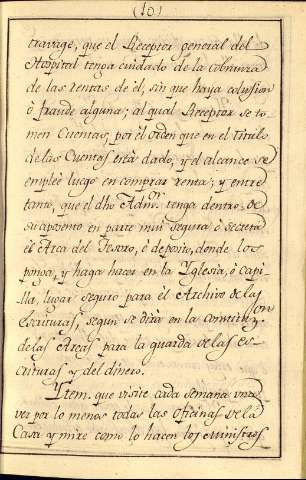 (10)
travage, que el Receptor general del
Hospital tenga cuidado de la cobranza
de las rentas de èl, sin que haya colusion
ò fraude alguna; al qual Receptor se to-
men Cuentas, por el orden que en el titulo
de las Cuentas està dado, y el alcance se
empleè luego en comprar renta; y entre
tanto, que el dho Admor. tenga dentro de
su aposento en parte mui segura ò secreta
el Arca del Tesoro, ò deposito, donde los
ponga, y haga hacer en la Yglesia, ò Capi-
lla, lugar seguro para el Archivo de las
escrituras, segun se dirà en la constituz.on
de las Arcas para la guarda de las es-
crituras y del dinero.
Ytem. que visite cada semana una
vez por lo menos todas las oficinas de la
Casa y mire como lo hacen los Ministros